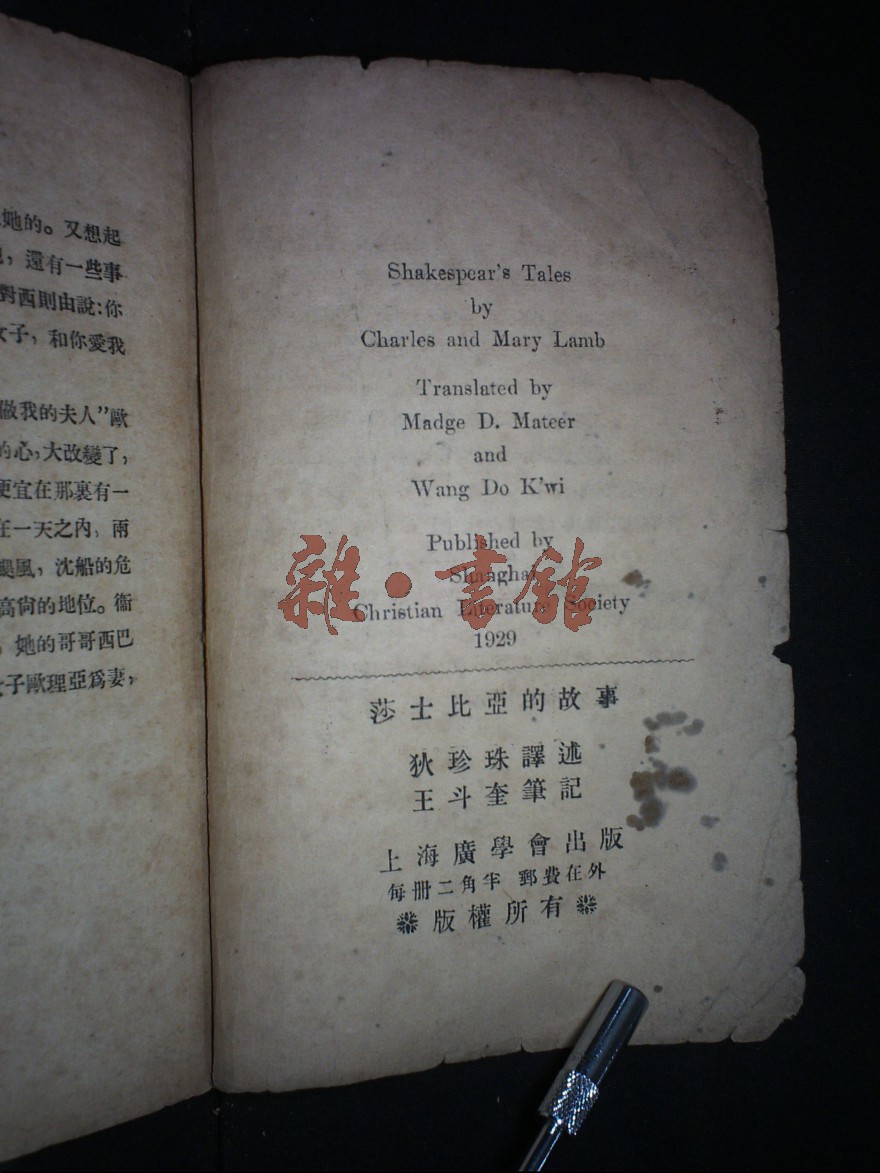 她的。又想起
，還有一些事
對西則由說：你
女子，和你愛我
做我的夫人”歐
的心，大改變了，
便宜在那裏有一
在一天之內，兩
颶風，沈船的危
高尙的地位。衞
，她的哥哥西巴
女子歐理亞爲妻，
Shakespear's Tales
by
Charles and Mary Lamb
Translated by
Madge D. Mateer
and
Wang Do K'wi
Published by
Shanghai
Christian Literature Society
1929
莎士比亞的故事
狄珍珠譯述
王斗奎筆記
上海廣學會出版
每冊二角半 郵費在外
版權所有
雜·書館